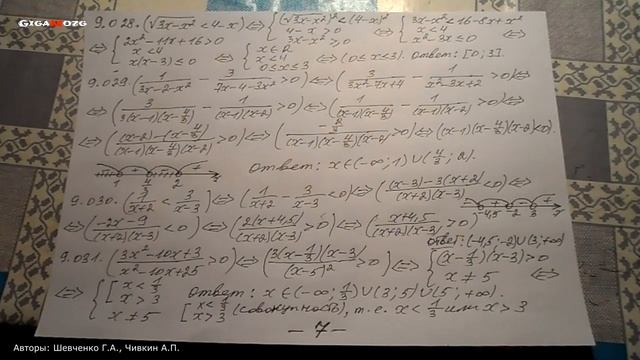 GIGAMOZG
9.028. (√3x-x² < 4-x) ⟺ { (√3x-x²)² < (4-x)² 4-x > 0 3x-x² ≥ 0 ⟺ { 3x-x² < 16-8x+x² x < 4 x²-3x ≤ 0 ⟺
⟺ { 2x²-11x+16 > 0 x < 4 x(x-3) ≤ 0 ⟺ { x ∈ R x < 4 0 ≤ x ≤ 3 ⟺ (0 ≤ x ≤ 3). Ответ: [0; 3].
9.029 (1/(3x-2-x²) - 3/(7x-4-3x²) > 0) ⟺ (3/(3x²-7x+4) - 1/(x²-3x+2) > 0) ⟺
⟺ (3/(3(x-1)(x-4/3)) - 1/((x-1)(x-2)) > 0) ⟺ (1/((x-1)(x-4/3)) - 1/((x-1)(x-2)) > 0) ⟺
⟺ (((x-2)-(x-4/3))/((x-1)(x-4/3)(x-2)) > 0) ⟺ ((x-1)(x-4/3)(x-2) < 0).
1 4/3 2 Ответ: x ∈ (-∞; 1) ∪ (4/3; 2).
9.030. (1/(x+2) < 3/(x-3)) ⟺ (1/(x+2) - 3/(x-3) < 0) ⟺ (((x-3)-3(x+2))/((x+2)(x-3)) < 0) ⟺
⟺ ((-2x-9)/((x+2)(x-3)) < 0) ⟺ (2(x+4,5)/((x+2)(x-3)) > 0) ⟺ ((x+4,5)/((x+2)(x-3)) > 0) -4,5 -2 3
Ответ: (-4,5; -2) ∪ (3; +∞)
9.031. ((3x²-10x+3)/(x²-10x+25) > 0) ⟺ (3(x-1/3)(x-3)/(x-5)² > 0) ⟺ { (x-1/3)(x-3) > 0 x ≠ 5 ⟺
⟺ { [ x < 1/3 x > 3 x ≠ 5 Ответ: x ∈ (-∞; 1/3) ∪ (3; 5) ∪ (5; +∞).
[ x < 1/3 x > 3 (совокупность), т.е. x < 1/3 или x > 3
- 7 -
Авторы: Шевченко Г.А., Чивкин А.П.